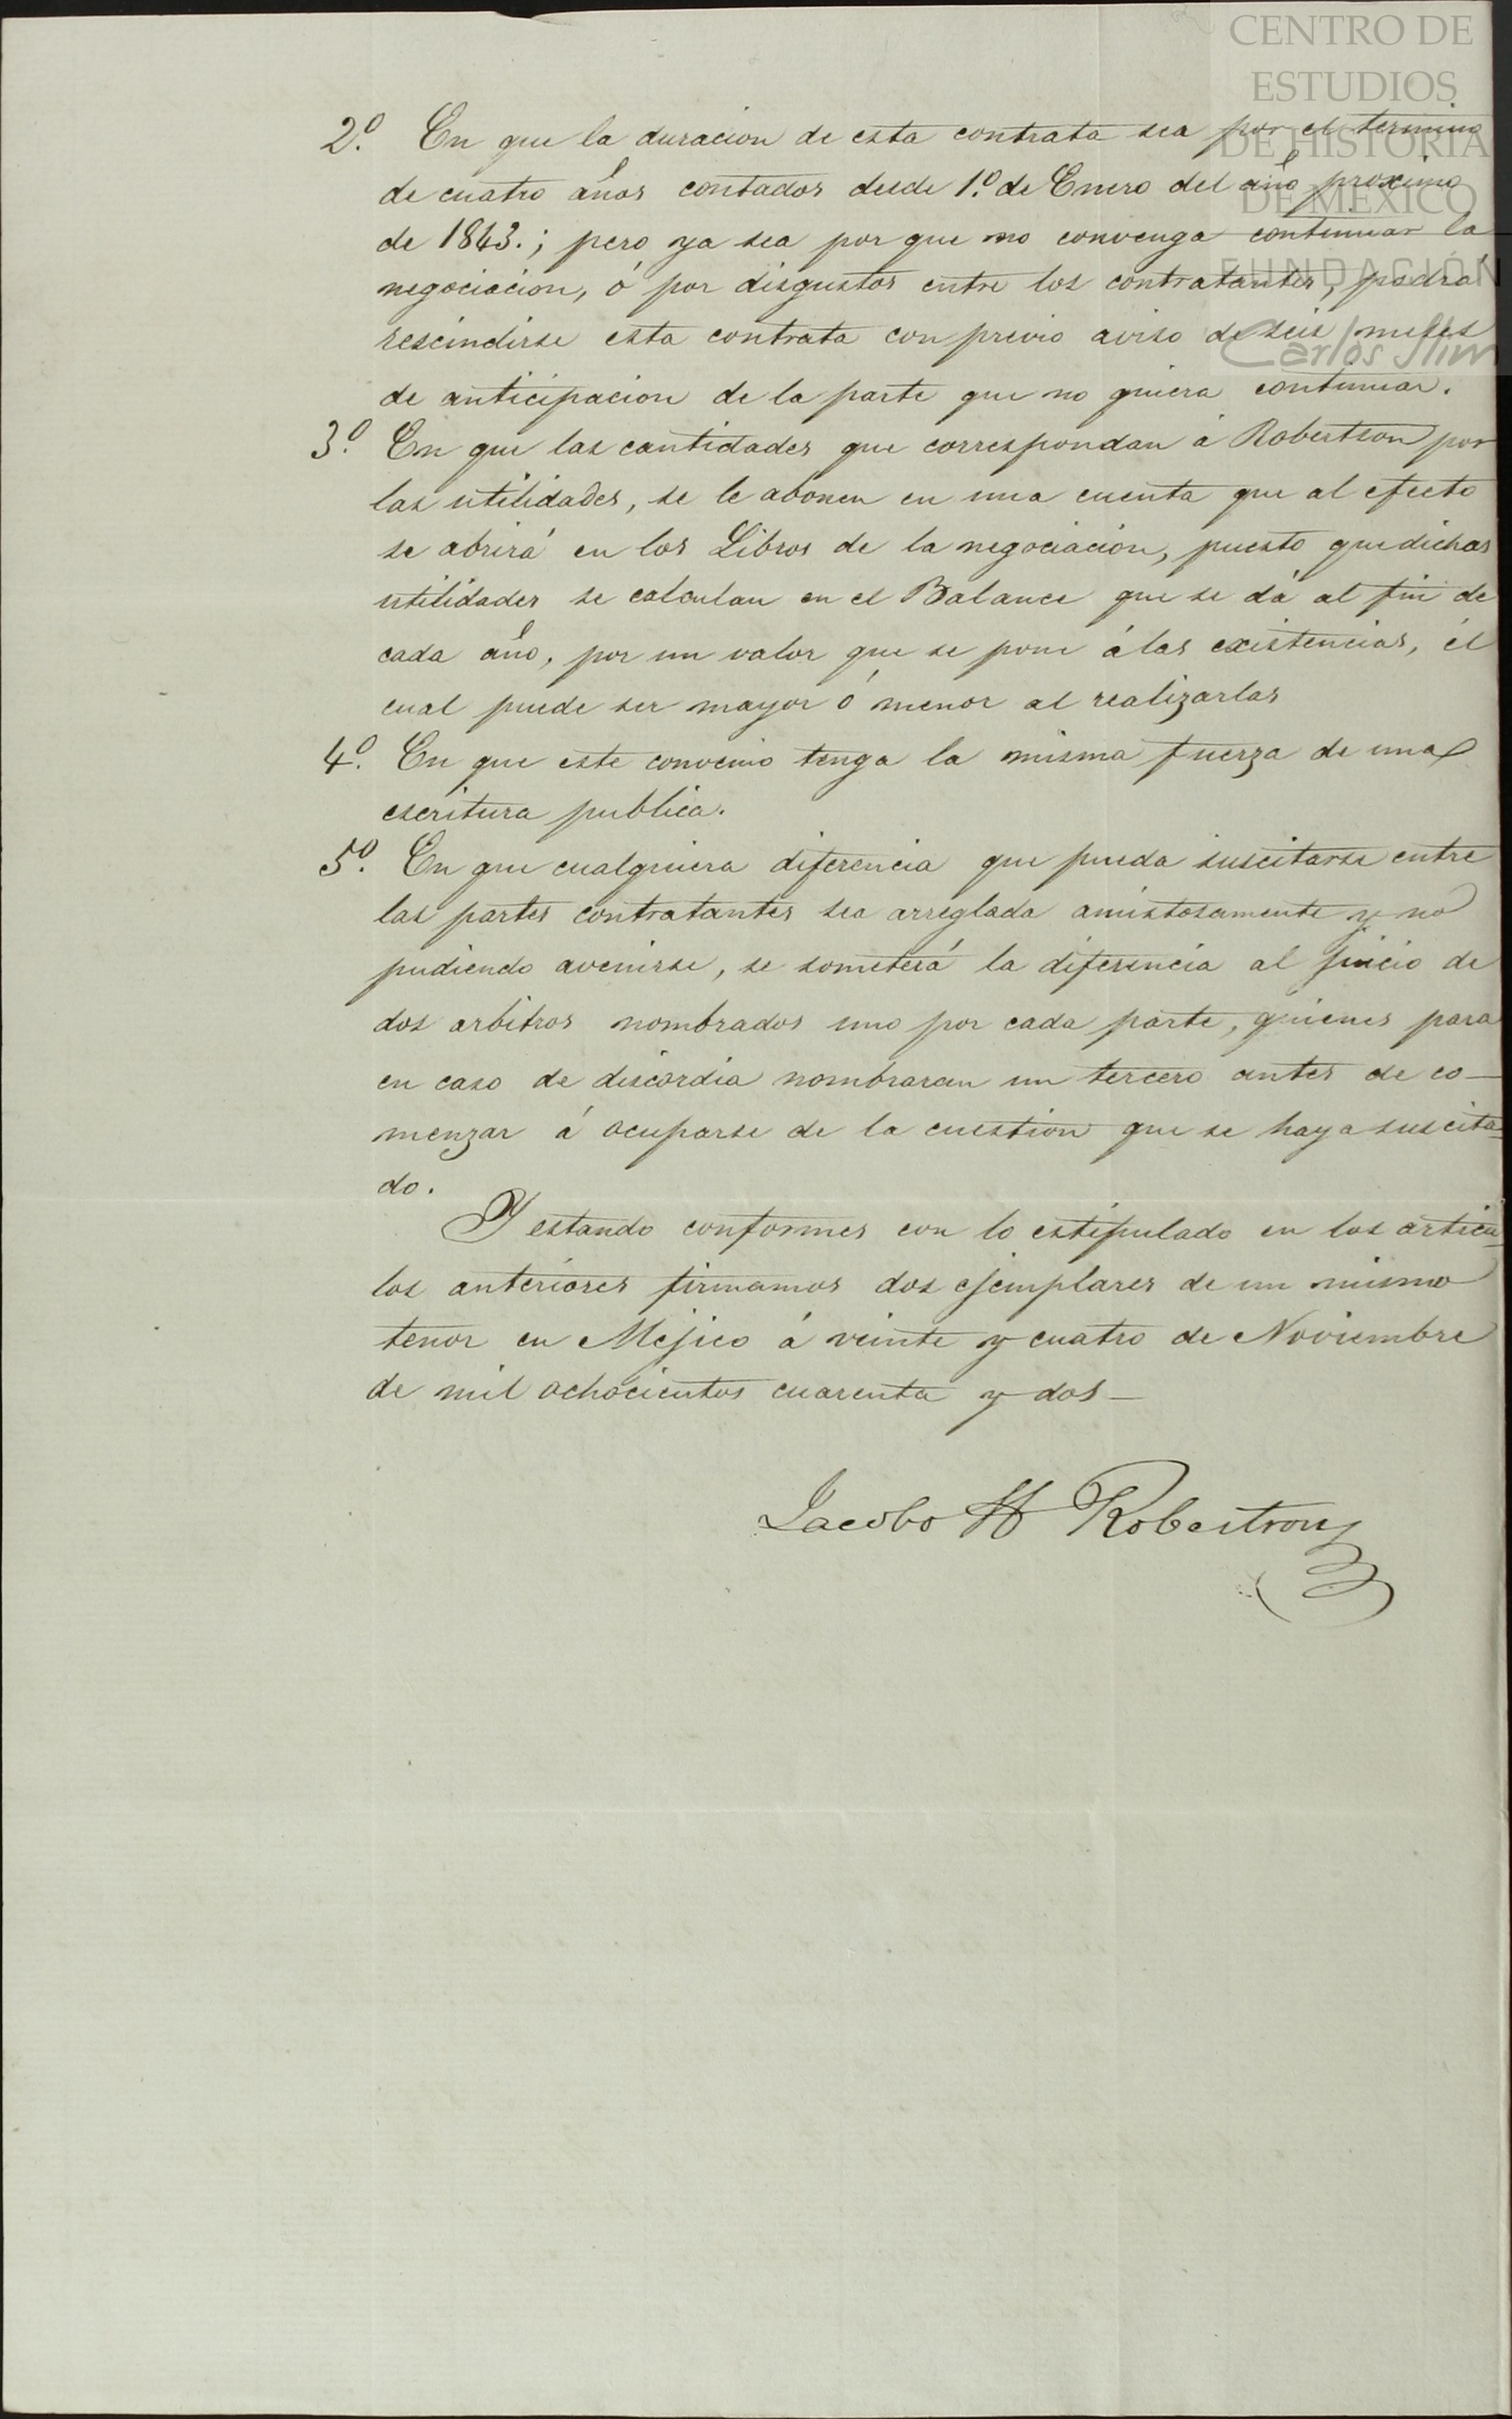 CENTRO DE
ESTUDIOS
DE HISTORIA
DE MÉXICO
FUNDACIÓN
Carlos Slim
2º. En que la duracion de esta contrata sea por el termino
de cuatro años contados desde 1º. de Enero del año proximo
de 1843.; pero ya sea por que no convenga continuar la
negociacion, ó por disgustos entre los contratantes, podrá
rescindirse esta contrata con previo aviso de seis meses
de anticipacion de la parte que no quiera continuar.
3º. En que las cantidades que correspondan á Robertson por
las utilidades, se le abonen en una cuenta que al efecto
se abrirá en los Libros de la negociacion, puesto que dichas
utilidades se calculan en el Balance que se dá al fin de
cada año, por un valor que se pone á las existencias, él
cual puede ser mayor ó menor al realizarlas
4º. En que este convenio tenga la misma fuerza de una
escritura publica.
5º. En que cualquiera diferencia que pueda suscitarse entre
las partes contratantes sea arreglada amistosamente y no
pudiendo avenirse, se someterá la diferencia al juicio de
dos arbitros nombrados uno por cada parte, quienes para
en caso de discordia nombraran un tercero antes de co-
menzar á ocuparse de la cuestion que se haya suscita-
do.
Y estando conformes con lo estipulado en los articu-
los anteriores firmamos dos ejemplares de un mismo
tenor en Mejico á veinte y cuatro de Noviembre
de mil ochocientos cuarenta y dos—
Jacobo H Robertson